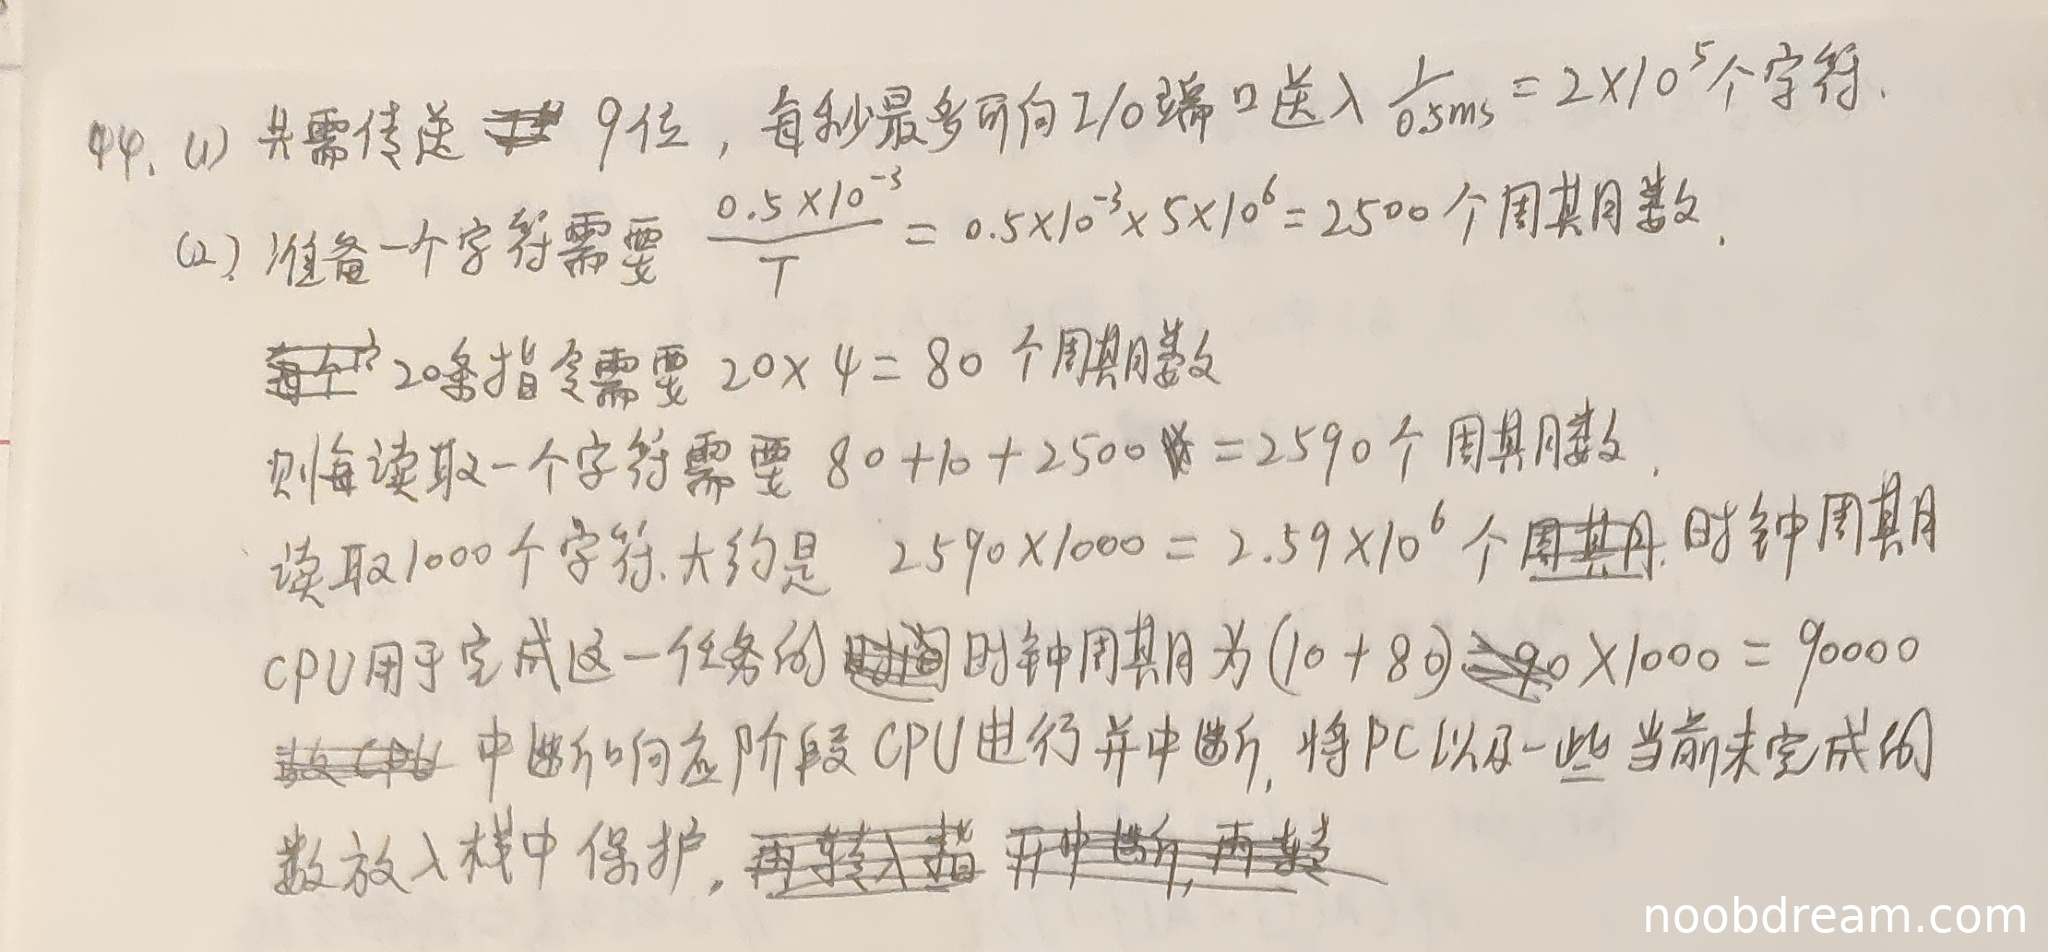 44. (1) 共需传送 9位，每秒最多可向I/O端口送入 1/0.5ms = 2×10⁵个字符.
(2). 准备一个字符需要 0.5×10⁻³/T = 0.5×10⁻³×5×10⁶=2500个周期数.
20条指令需要 20×4=80 个周期数
则每读取一个字符需要 80+10+2500 =2590个周期数.
读取1000个字符.大约是 2590×1000=2.59×10⁶个 时钟周期
CPU用于完成这一任务的 时钟周期为(10+80) ×1000=90000
中断响应阶段CPU进行开中断,将PC以及一些当前未完成的
数放入栈中保护.
noobdream.com